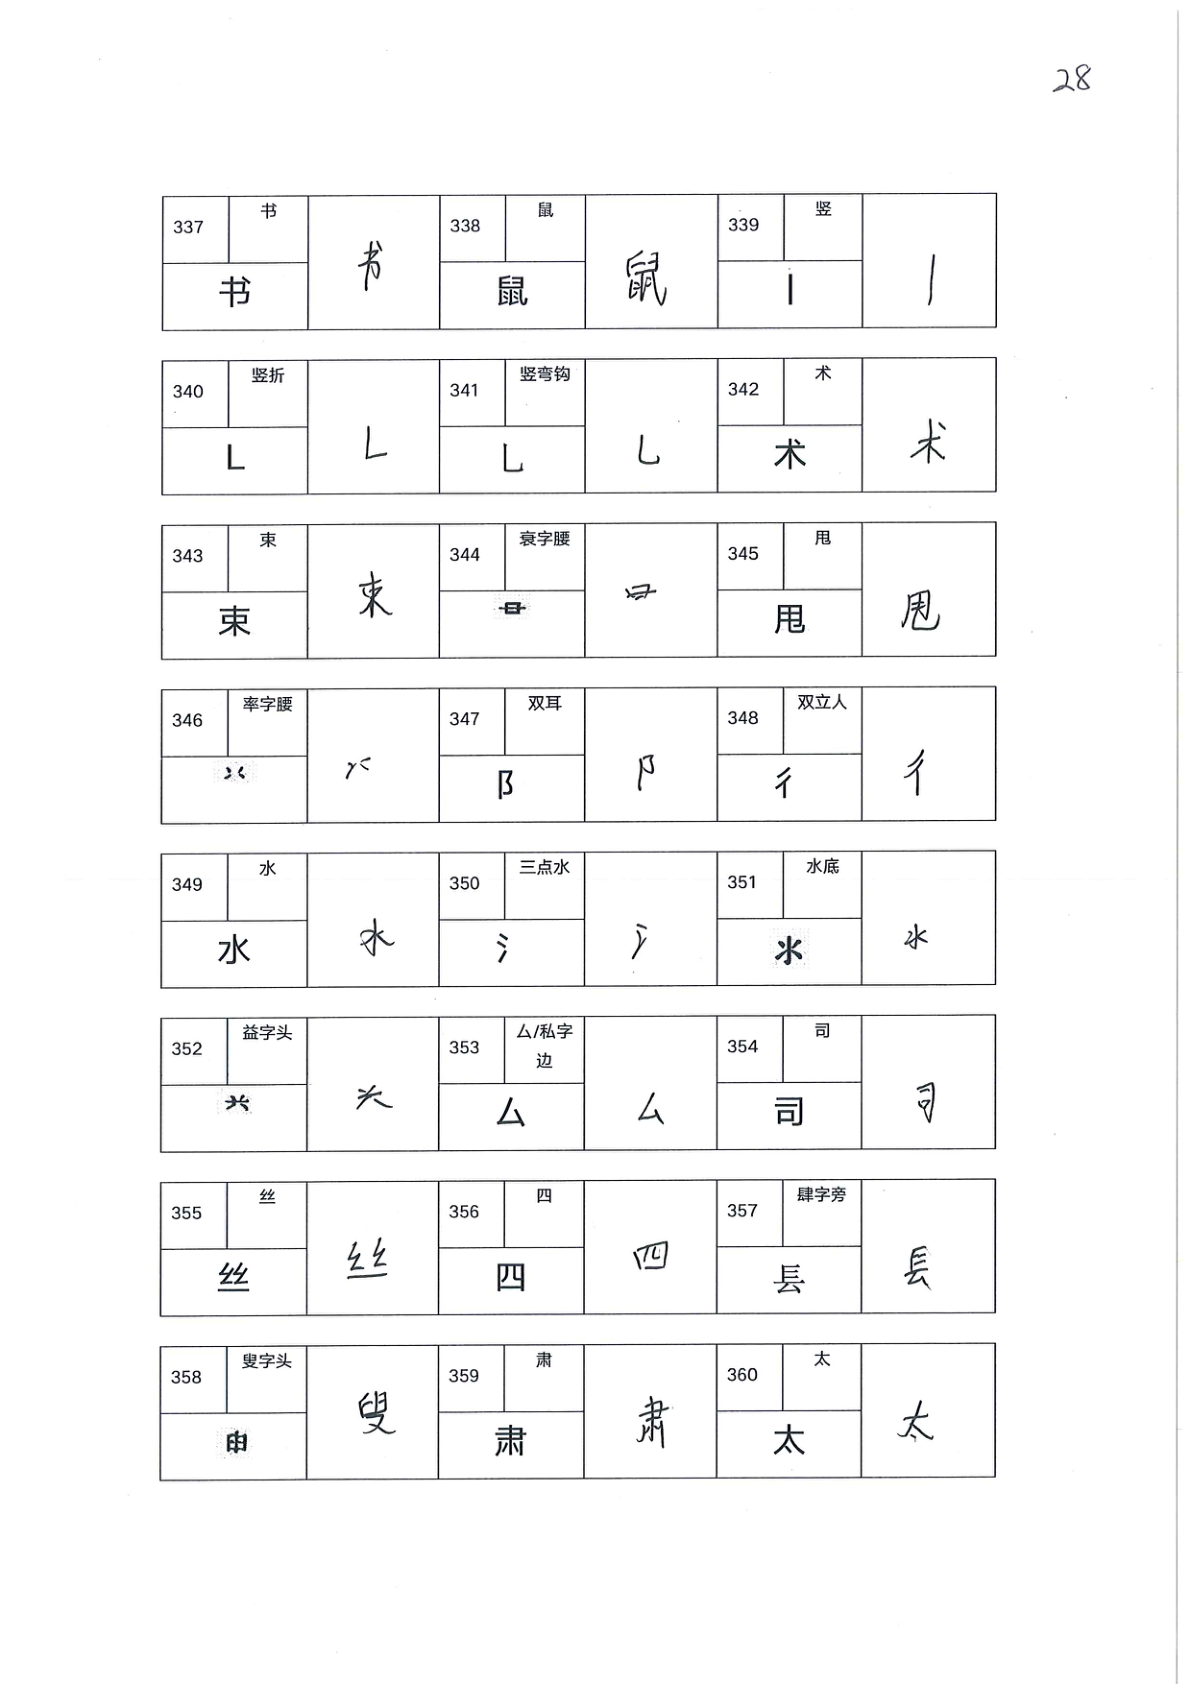 28
337 书 书 书 338 鼠 鼠 鼠 339 竖 丨 丨
340 竖折 ㇗ ㇗ 341 竖弯钩 乚 乚 342 术 术 术
343 束 束 束 344 衰字腰 345 甩 甩 甩
346 率字腰 347 双耳 阝 阝 348 双立人 彳 彳
349 水 水 水 350 三点水 氵 氵 351 水底 氺 氺
352 益字头 353 厶/私字边 厶 厶 354 司 司 司
355 丝 丝 丝 356 四 四 四 357 肆字旁 镸 镸
358 叟字头 叟 359 肃 肃 肃 360 太 太 太